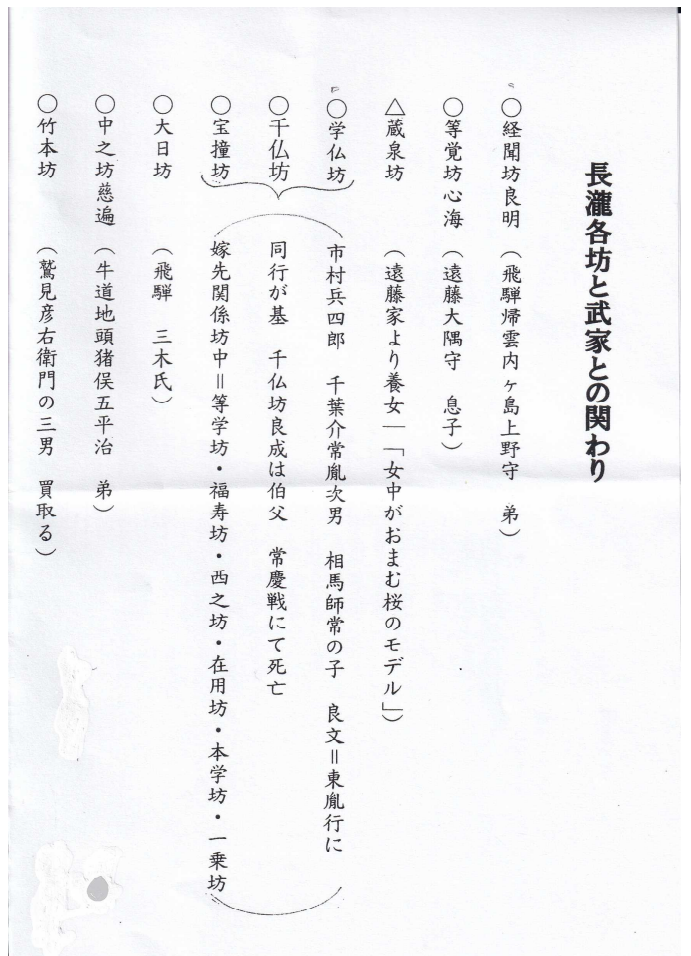 長瀧各坊と武家との関わり
○経聞坊良明 (飛騨帰雲内ヶ島上野守 弟)
○等覚坊心海 (遠藤大隅守 息子)
△蔵泉坊 (遠藤家より養女―「女中がおまむ桜のモデル」)
○学仏坊 市村兵四郎 千葉介常胤次男 相馬師常の子 良文＝東胤行に
○千仏坊 同行が基 千仏坊良成は伯父 常慶戦にて死亡
○宝撞坊 嫁先関係坊中＝等学坊・福寿坊・西之坊・在用坊・本学坊・一乗坊
○大日坊 (飛騨 三木氏)
○中之坊慈遍 (牛道地頭猪俣五平治 弟)
○竹本坊 (鷲見彦右衛門の三男 買取る)